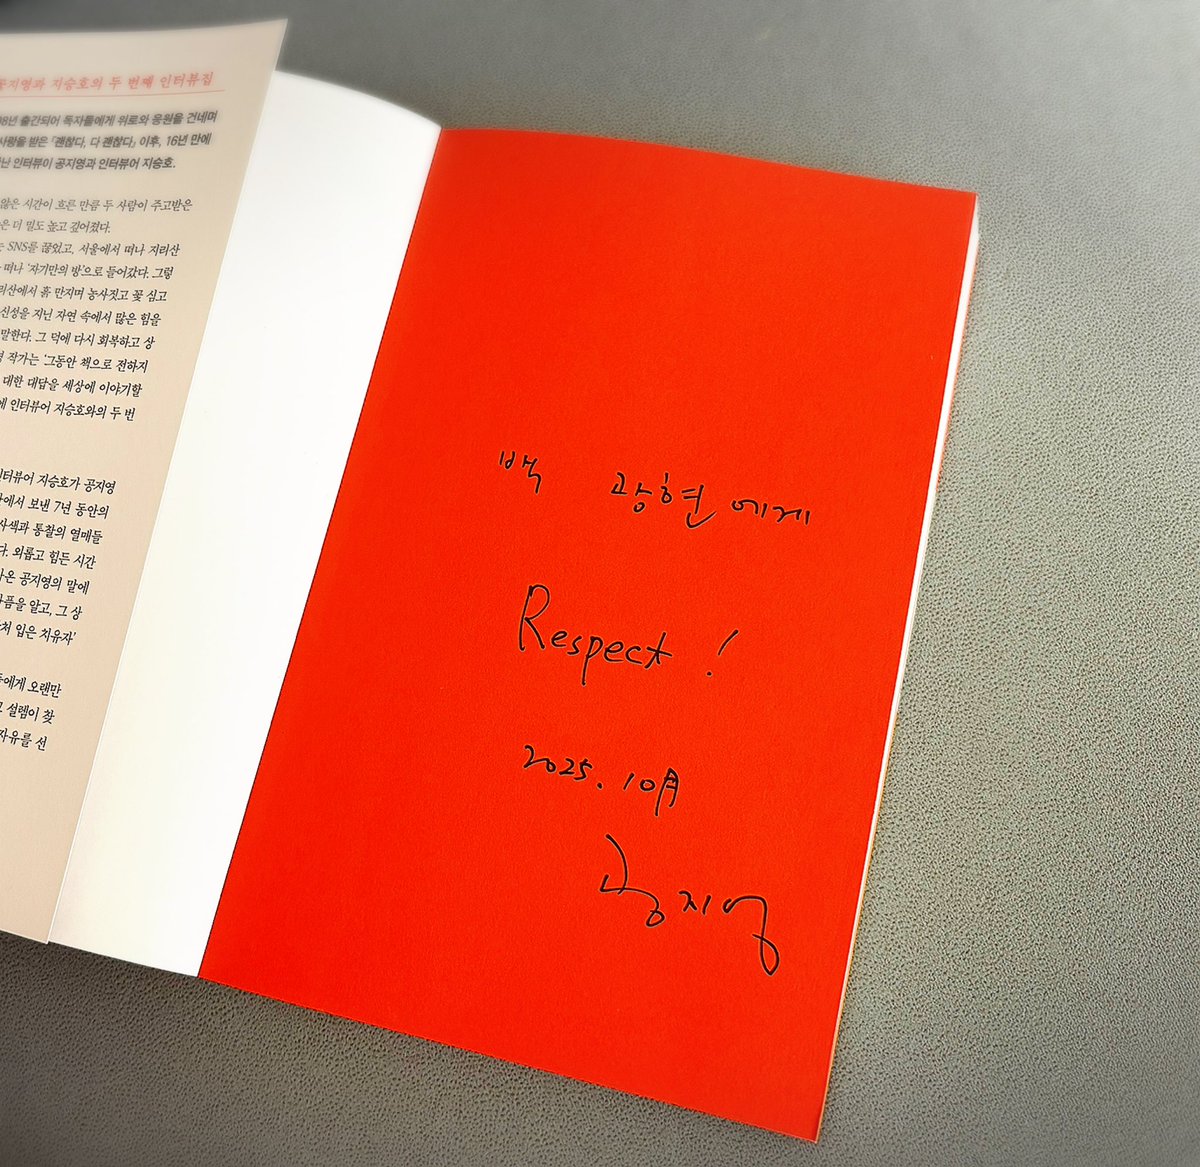 공지영과 지승호의 두 번째 인터뷰집
출간되어 독자들에게 위로와 응원을 건네며
사랑을 받은 『괜찮다, 다 괜찮다』 이후, 16년 만에
인터뷰이 공지영과 인터뷰어 지승호.
않은 시간이 흐른 만큼 두 사람이 주고받은
더 밀도 높고 깊어졌다.
SNS를 끊었고, 서울에서 떠나 지리산
떠나 '자기만의 방'으로 들어갔다. 그렇
흙 만지며 농사짓고 꽃 심고
신성을 지닌 자연 속에서 많은 힘을
말한다. 그 덕에 다시 회복하고 상
작가는 '그동안 책으로 전하지
대한 대답을 세상에 이야기할
인터뷰어 지승호와의 두 번
인터뷰어 지승호가 공지영
보낸 7년 동안의
사색과 통찰의 열매들
외롭고 힘든 시간
공지영의 말에
아픔을 알고, 그 상
입은 치유자'
오랜만
설렘이 찾
자유를 선
백 광현에게
Respect!
2025. 10月
공지영